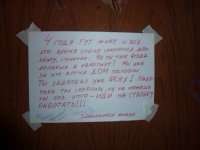 4 года тут живу и всё
это время слышу сверления, дол-
бёжку, стучание. Что ты там 4 года
делаешь в квартире? Мы уже
за это время дом построили.
Ты задолбал уже фсех! Надо
тебе так сверлить, ну не можешь
ты без этого - иди на стройку
работать!!!